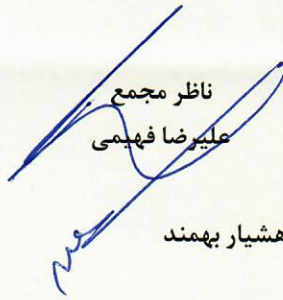 ناظر مجمع
علیرضا فهیمی
هشیار بهمند